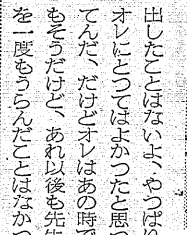 出したことはないよ、やっぱり
オレにとってはよかったと思っ
てんだ、だけどオレはあの時で
もそうだけど、あれ以後も先生
を一度もうらんだことはなかっ